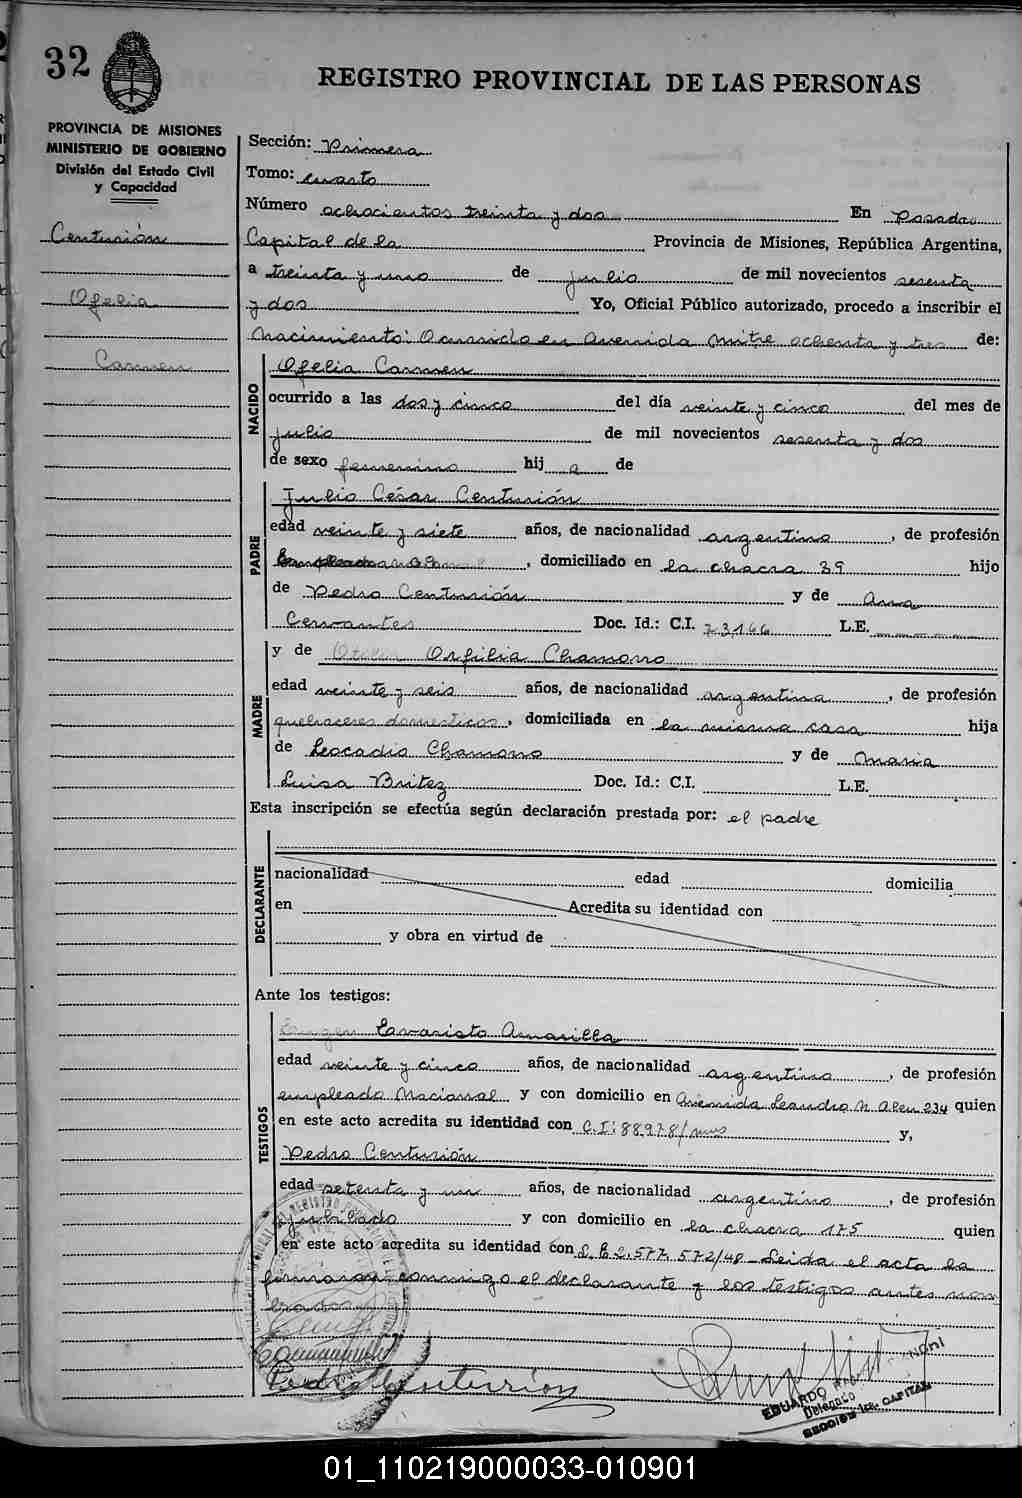 32
REGISTRO PROVINCIAL DE LAS PERSONAS
PROVINCIA DE MISIONES
MINISTERIO DE GOBIERNO
División del Estado Civil
y Capacidad
Centurión
Ofelia
Carmen
Sección: Primera
Tomo: cuarto
Número ochocientos treinta y dos En Posadas
Capital de la Provincia de Misiones, República Argentina,
a treinta y uno de julio de mil novecientos sesenta
y dos Yo, Oficial Público autorizado, procedo a inscribir el
Nacimiento: Ocurrido en Avenida Mitre ochenta y tres de:
NACIDO
Ofelia Carmen
ocurrido a las dos y cinco del día veinte y cinco del mes de
julio de mil novecientos sesenta y dos
de sexo femenino hij a de
PADRE
Julio César Centurión
edad veinte y siete años, de nacionalidad argentino, de profesión
domiciliado en la chacra 39 hijo
de Pedro Centurión y de Ana
Cervantes Doc. Id.: C.I. 73166 L.E.
MADRE
y de Orfilia Chamorro
edad veinte y seis años, de nacionalidad argentina, de profesión
quehaceres domesticos, domiciliada en la misma casa hija
de Leocadio Chamorro y de Maria
Luisa Britez Doc. Id.: C.I. L.E.
Esta inscripción se efectúa según declaración prestada por: el padre
DECLARANTE
nacionalidad edad domicilia
en Acredita su identidad con
y obra en virtud de
Ante los testigos:
TESTIGOS
Evaristo Amarilla
edad veinte y cinco años, de nacionalidad argentino, de profesión
empleado Nacional y con domicilio en Avenida Leandro N Alem 234 quien
en este acto acredita su identidad con C.I: 88978/mns y,
Pedro Centurión
edad setenta y un años, de nacionalidad argentino, de profesión
jubilado y con domicilio en la chacra 175 quien
en este acto acredita su identidad con L.E. 2.577.572/48 Leida el acta la
firmaron conmigo el declarante y los testigos antes nom
brados
Pedro Centurion
EDUARDO
Delegado
SECCION 1ra. CAPITAL
01_110219000033-010901